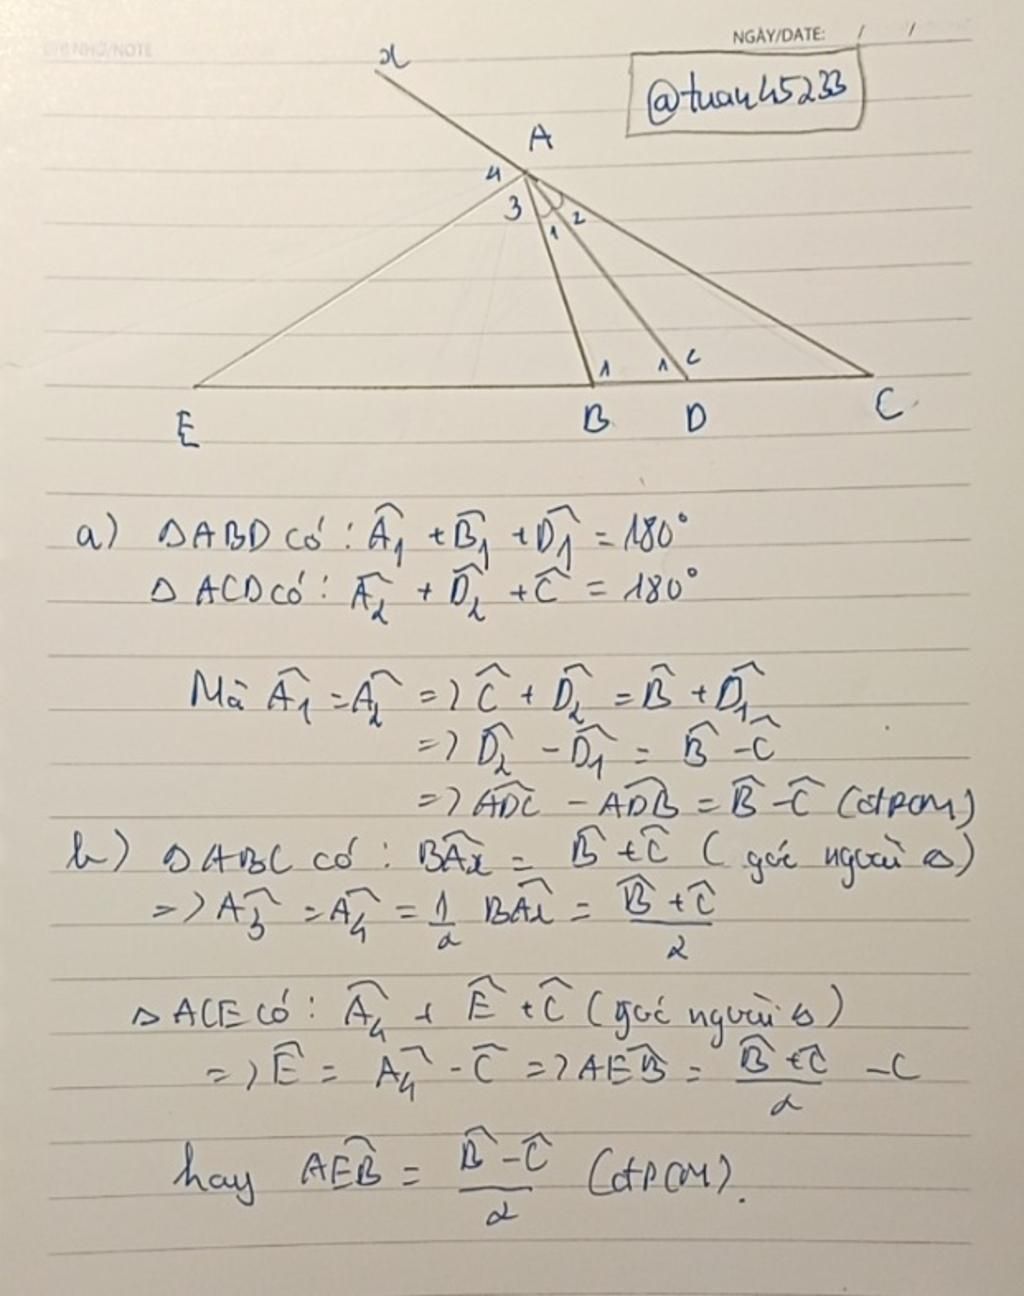 GHI NHỚ/NOTE
NGÀY/DATE: / /
@tuan45233
x
A
4
3
1
2
1
1
2
E
B
D
C
a) ΔABD có: Â₁ + B̂₁ + D̂₁ = 180°
Δ ACD có: Â₂ + D̂₂ + Ĉ = 180°
Mà Â₁ = Â₂ => Ĉ + D̂₂ = B̂ + D̂₁
=> D̂₂ - D̂₁ = B̂ - Ĉ
=> ADC - ADB = B̂ - Ĉ (đPCM)
b) ΔABC có: BAx = B̂ + Ĉ (góc ngoài Δ)
=> Â₃ = Â₄ = 1/2 BAx = (B̂ + Ĉ)/2
Δ ACE có: Â₄ + Ê + Ĉ (góc ngoài Δ)
=> Ê = Â₄ - Ĉ => AEB = (B̂ + Ĉ)/2 - C
hay AEB = (B̂ - Ĉ)/2 (đPCM).